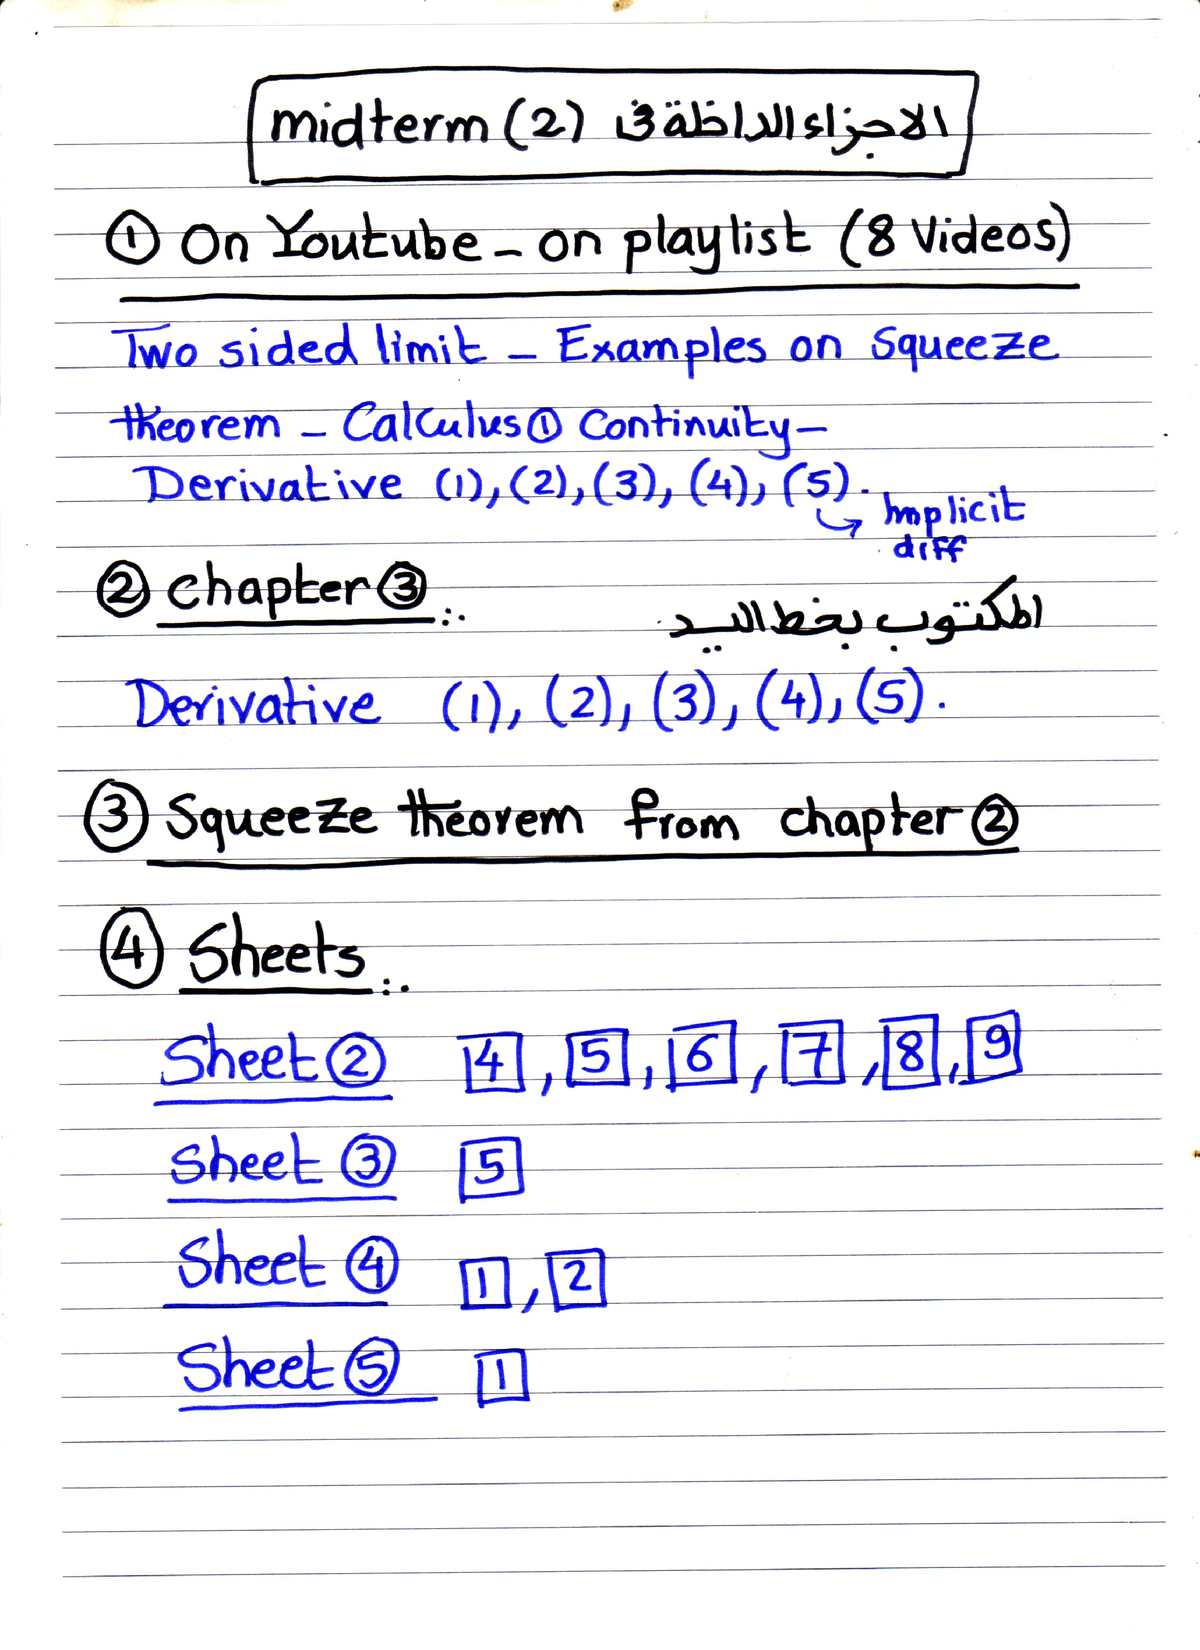 الاجزاء الداخلة فى midterm (2)
① On Youtube - on playlist (8 Videos)
Two sided limit - Examples on Squeeze
theorem - Calculus ① Continuity -
Derivative (1), (2), (3), (4), (5).
↳ Implicit
diff
② Chapter ③ :.
المكتوب بخط اليد
Derivative (1), (2), (3), (4), (5).
③ Squeeze theorem from chapter ②
④ Sheets :.
Sheet ② 4, 5, 6, 7, 8, 9
Sheet ③ 5
Sheet ④ 1, 2
Sheet ⑤ 1